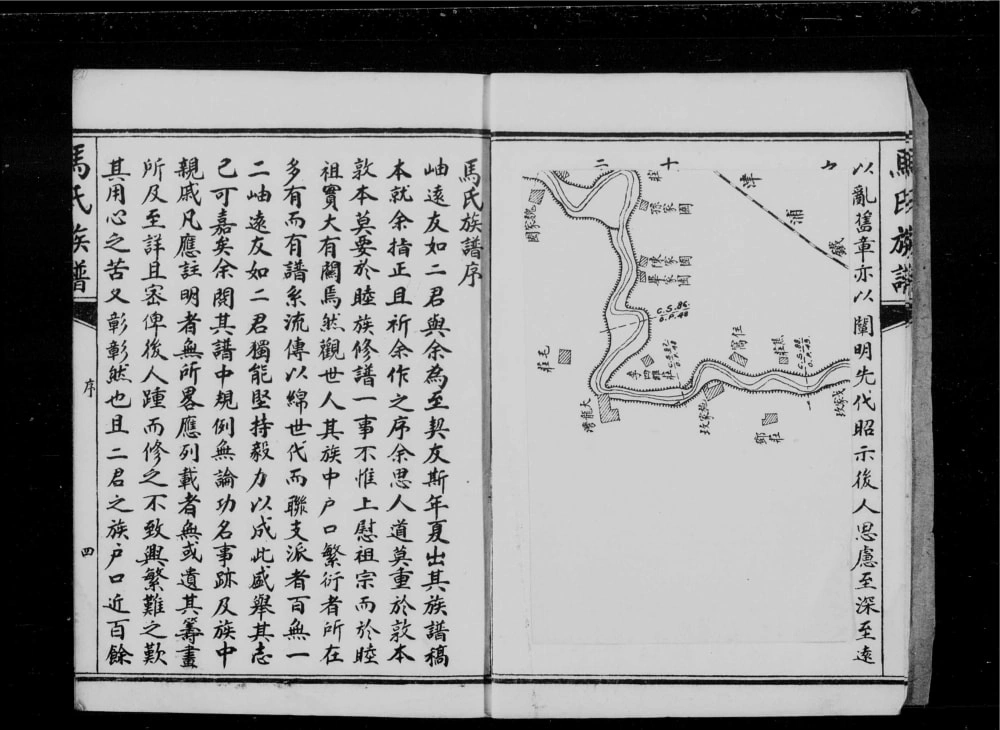 馬氏族譜
以亂舊章亦以闡明先代昭示後人思慮至深至遠
十
二
津
浦
鐵
孫家園
陳家園
畢家園
C.S.86.
毛莊
李四
大龍灣
任
鄭莊
馬氏族譜序
岫遠友如二君與余為至契友斯年夏出其族譜稿
本就余指正且祈余作之序余思人道莫重於敦本
敦本莫要於睦族修譜一事不惟上慰祖宗而於睦
祖實大有關焉然觀世人其族中户口繁衍者所在
多有而有譜系流傳以綿世代而聯支派者百無一
二岫遠友如二君獨能堅持毅力以成此盛舉其志
已可嘉矣余閱其譜中規例無論功名事跡及族中
親戚凡應註明者無所畧應列載者無或遺其籌畫
所及至詳且密俾後人踵而修之不致興繁難之歎
其用心之苦又彰彰然也且二君之族户口近百餘
馬氏族譜
序
四